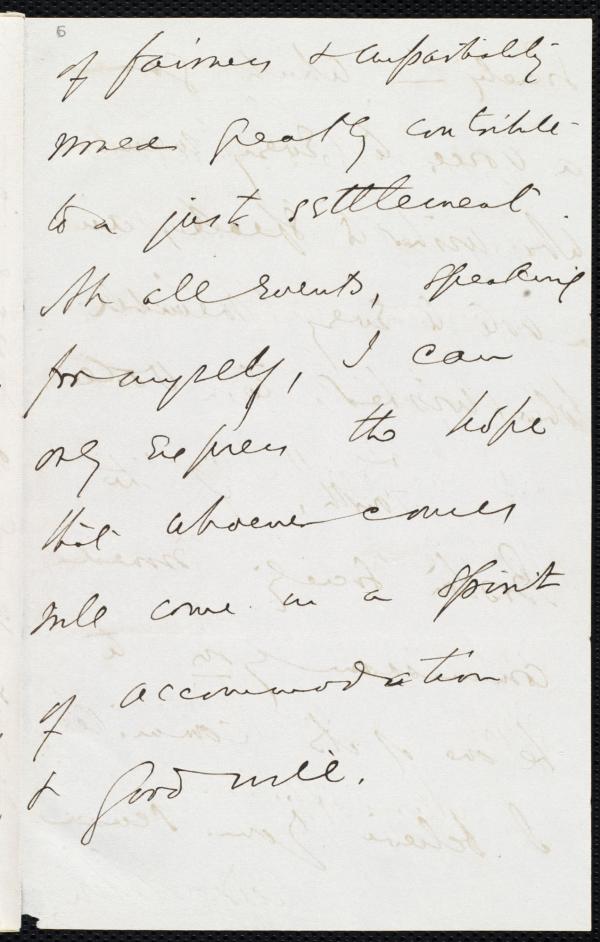 6
of fairness & impartiality
would greatly contribute
to a just settlement.
At all events, speaking
for myself, I can
only express the hope
that whoever comes
will come in a spirit
of accommodation
& good will.